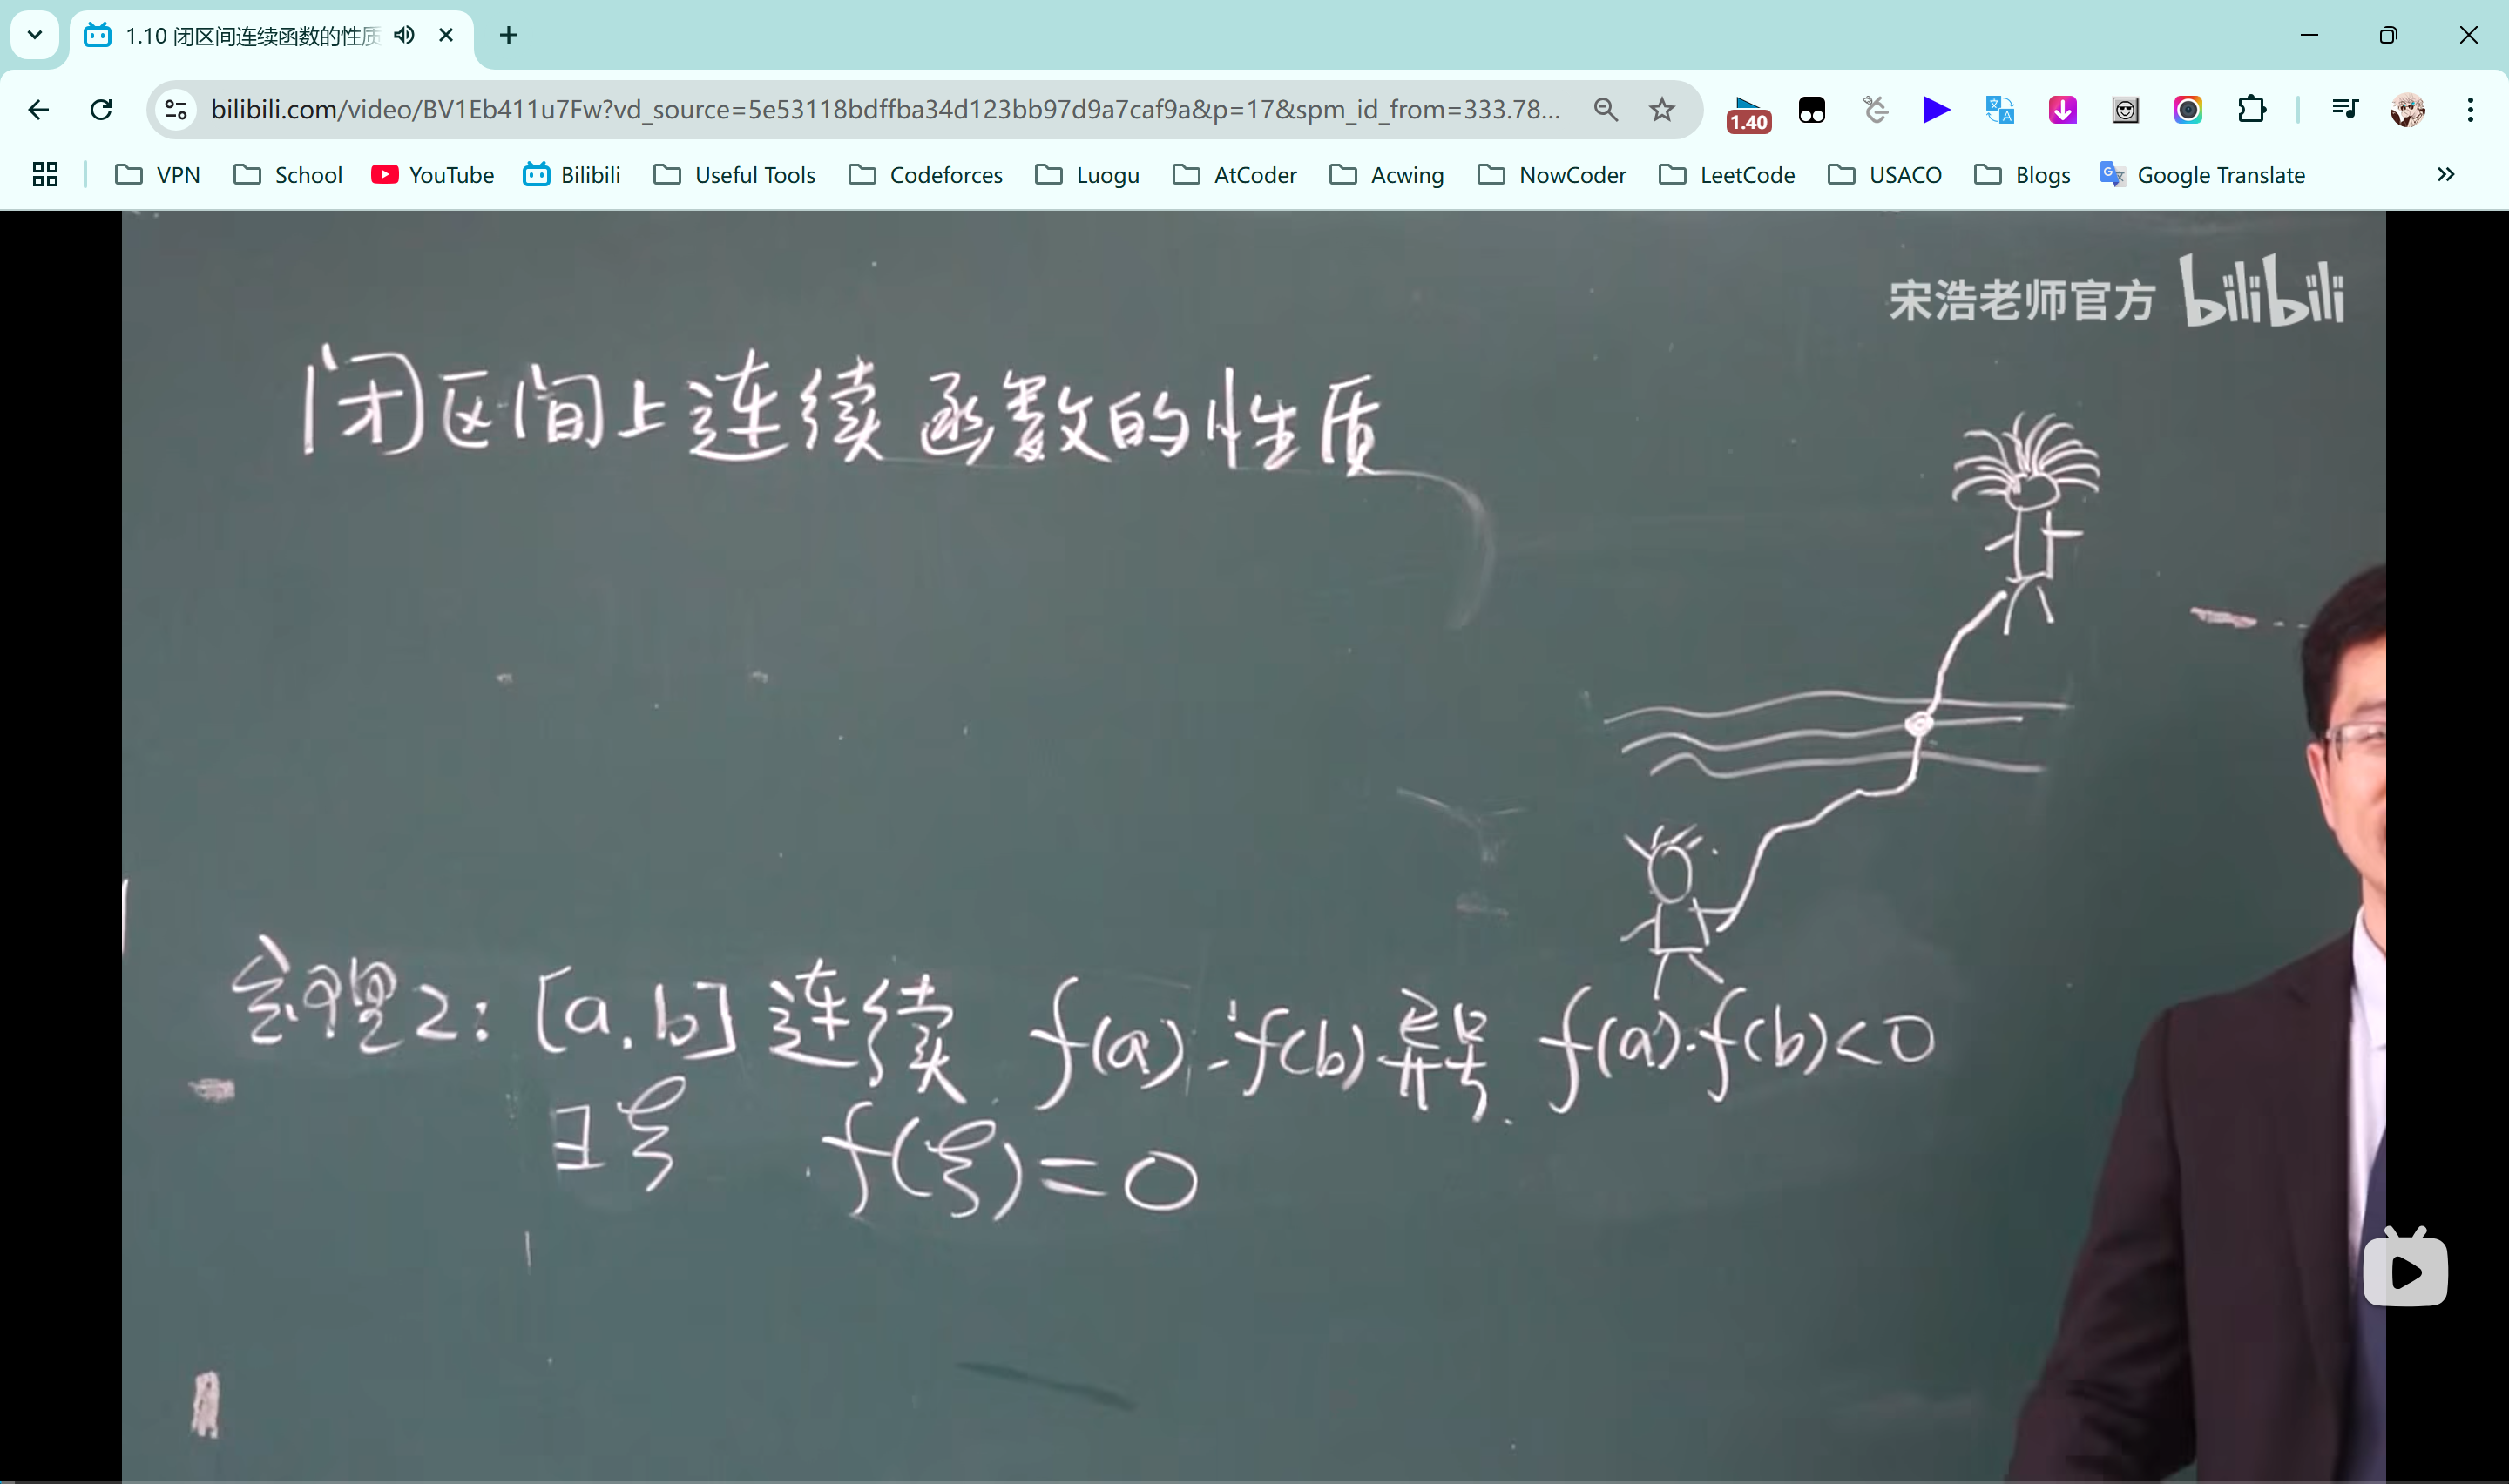 1.10 闭区间连续函数的性质
bilibili.com/video/BV1Eb411u7Fw?vd_source=5e53118bdffba34d123bb97d9a7caf9a&p=17&spm_id_from=333.78...
1.40
VPN School YouTube Bilibili Useful Tools Codeforces Luogu AtCoder Acwing NowCoder LeetCode USACO Blogs Google Translate
宋浩老师官方 bilibili
闭区间上连续函数的性质
定理2: [a,b] 连续 f(a), f(b) 异号. f(a)·f(b)<0
∃ξ f(ξ)=0